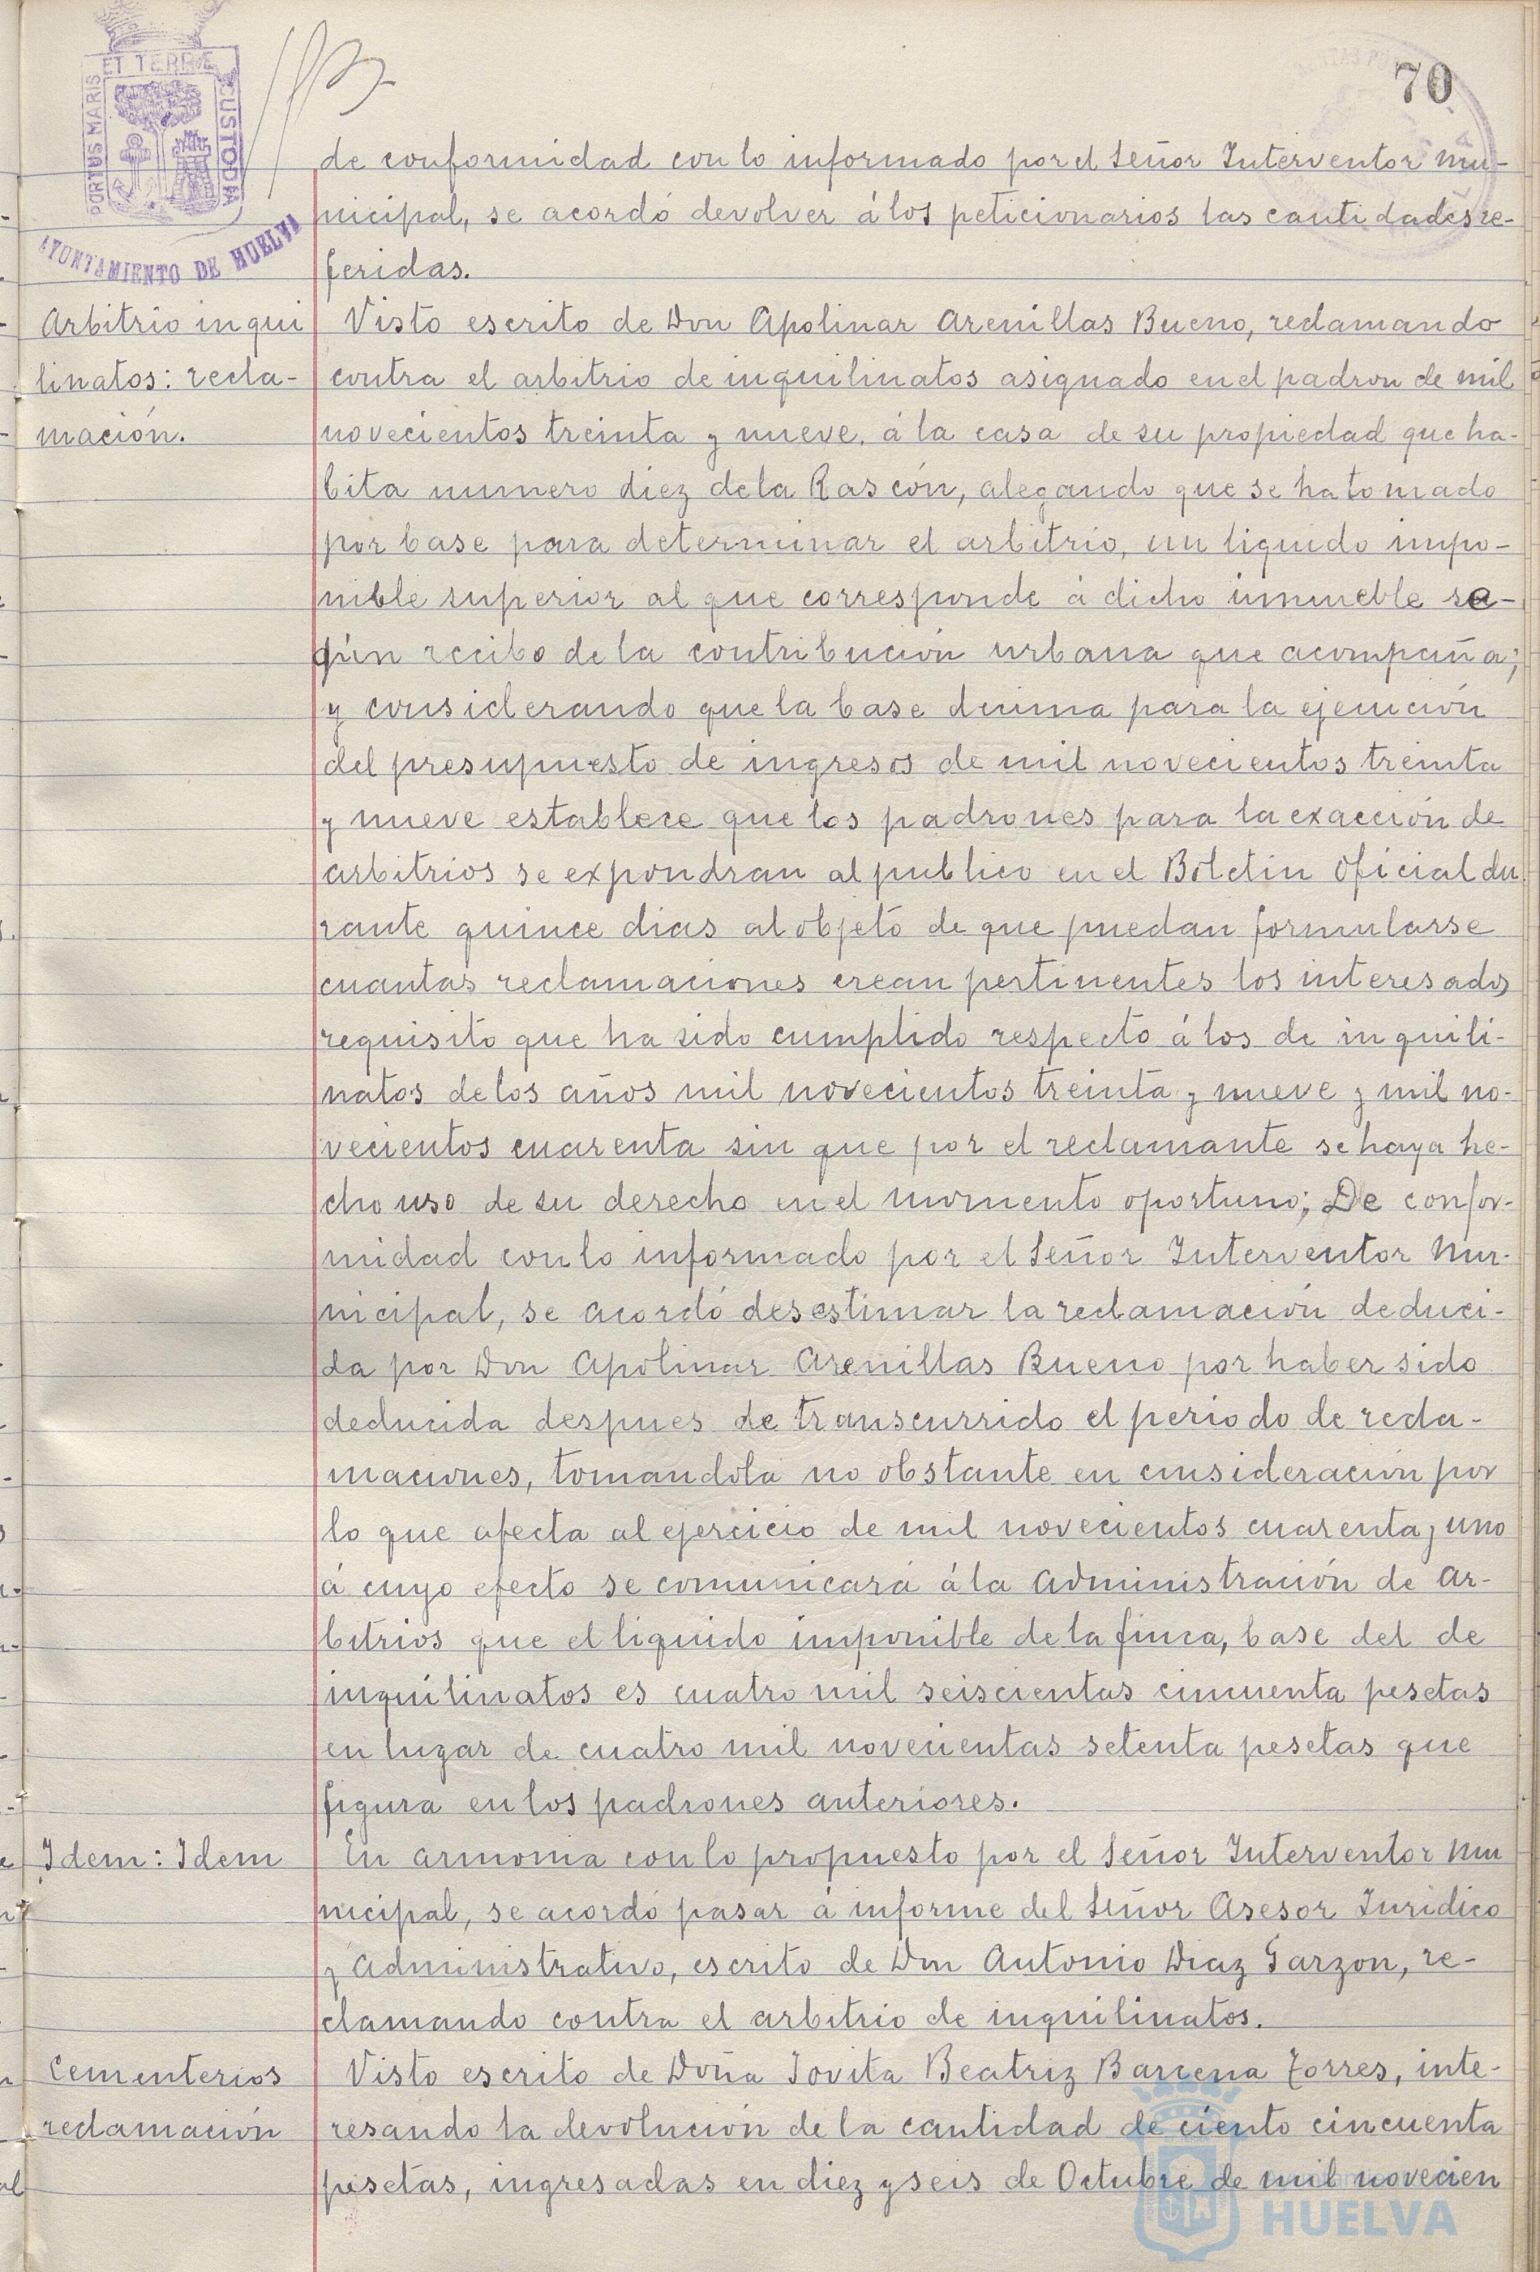 70
PORTUS MARIS ET TERRE CUSTODIA
AYUNTAMIENTO DE HUELVA
de conformidad con lo informado por el Señor Interventor Mu-
nicipal, se acordó devolver á los peticionarios las cantidades re-
feridas.
Arbitrio inqui
linatos: recla-
mación.
Visto escrito de Don Apolinar Arenillas Bueno, reclamando
contra el arbitrio de inquilinatos asignado en el padron de mil
novecientos treinta y nueve, á la casa de su propiedad que ha-
bita numero diez de la Rascón, alegando que se ha tomado
por base para determinar el arbitrio, un liquido impo-
nible superior al que corresponde á dicho inmueble se-
gún recibo de la contribución urbana que acompaña;
y considerando que la base decima para la ejecución
del presupuesto de ingresos de mil novecientos treinta
y nueve establece que los padrones para la exacción de
arbitrios se expondran al publico en el Boletin Oficial du
rante quince dias al objeto de que puedan formularse
cuantas reclamaciones crean pertinentes los interesados
requisito que ha sido cumplido respecto á los de inquili-
natos de los años mil novecientos treinta y nueve y mil no-
vecientos cuarenta sin que por el reclamante se haya he-
cho uso de su derecho en el momento oportuno; De confor-
midad con lo informado por el Señor Interventor Mu-
nicipal, se acordó desestimar la reclamación deduci-
da por Don Apolinar Arenillas Bueno por haber sido
deducida despues de transcurrido el periodo de recla-
maciones, tomandola no obstante en consideración por
lo que afecta al ejercicio de mil novecientos cuarenta y uno
á cuyo efecto se comunicará á la Administración de Ar-
bitrios que el liquido imponible de la finca, base del de
inquilinatos es cuatro mil seiscientas cincuenta pesetas
en lugar de cuatro mil novecientas setenta pesetas que
figura en los padrones anteriores.
Idem: Idem
En armonia con lo propuesto por el Señor Interventor Mu
nicipal, se acordó pasar á informe del Señor Asesor Juridico
y Administrativo, escrito de Don Antonio Diaz Garzon, re-
clamando contra el arbitrio de inquilinatos.
Cementerios
reclamación
Visto escrito de Doña Jovita Beatriz Barcena Torres, inte-
resando la devolución de la cantidad de ciento cincuenta
pesetas, ingresadas en diez y seis de Octubre de mil novecien
HUELVA